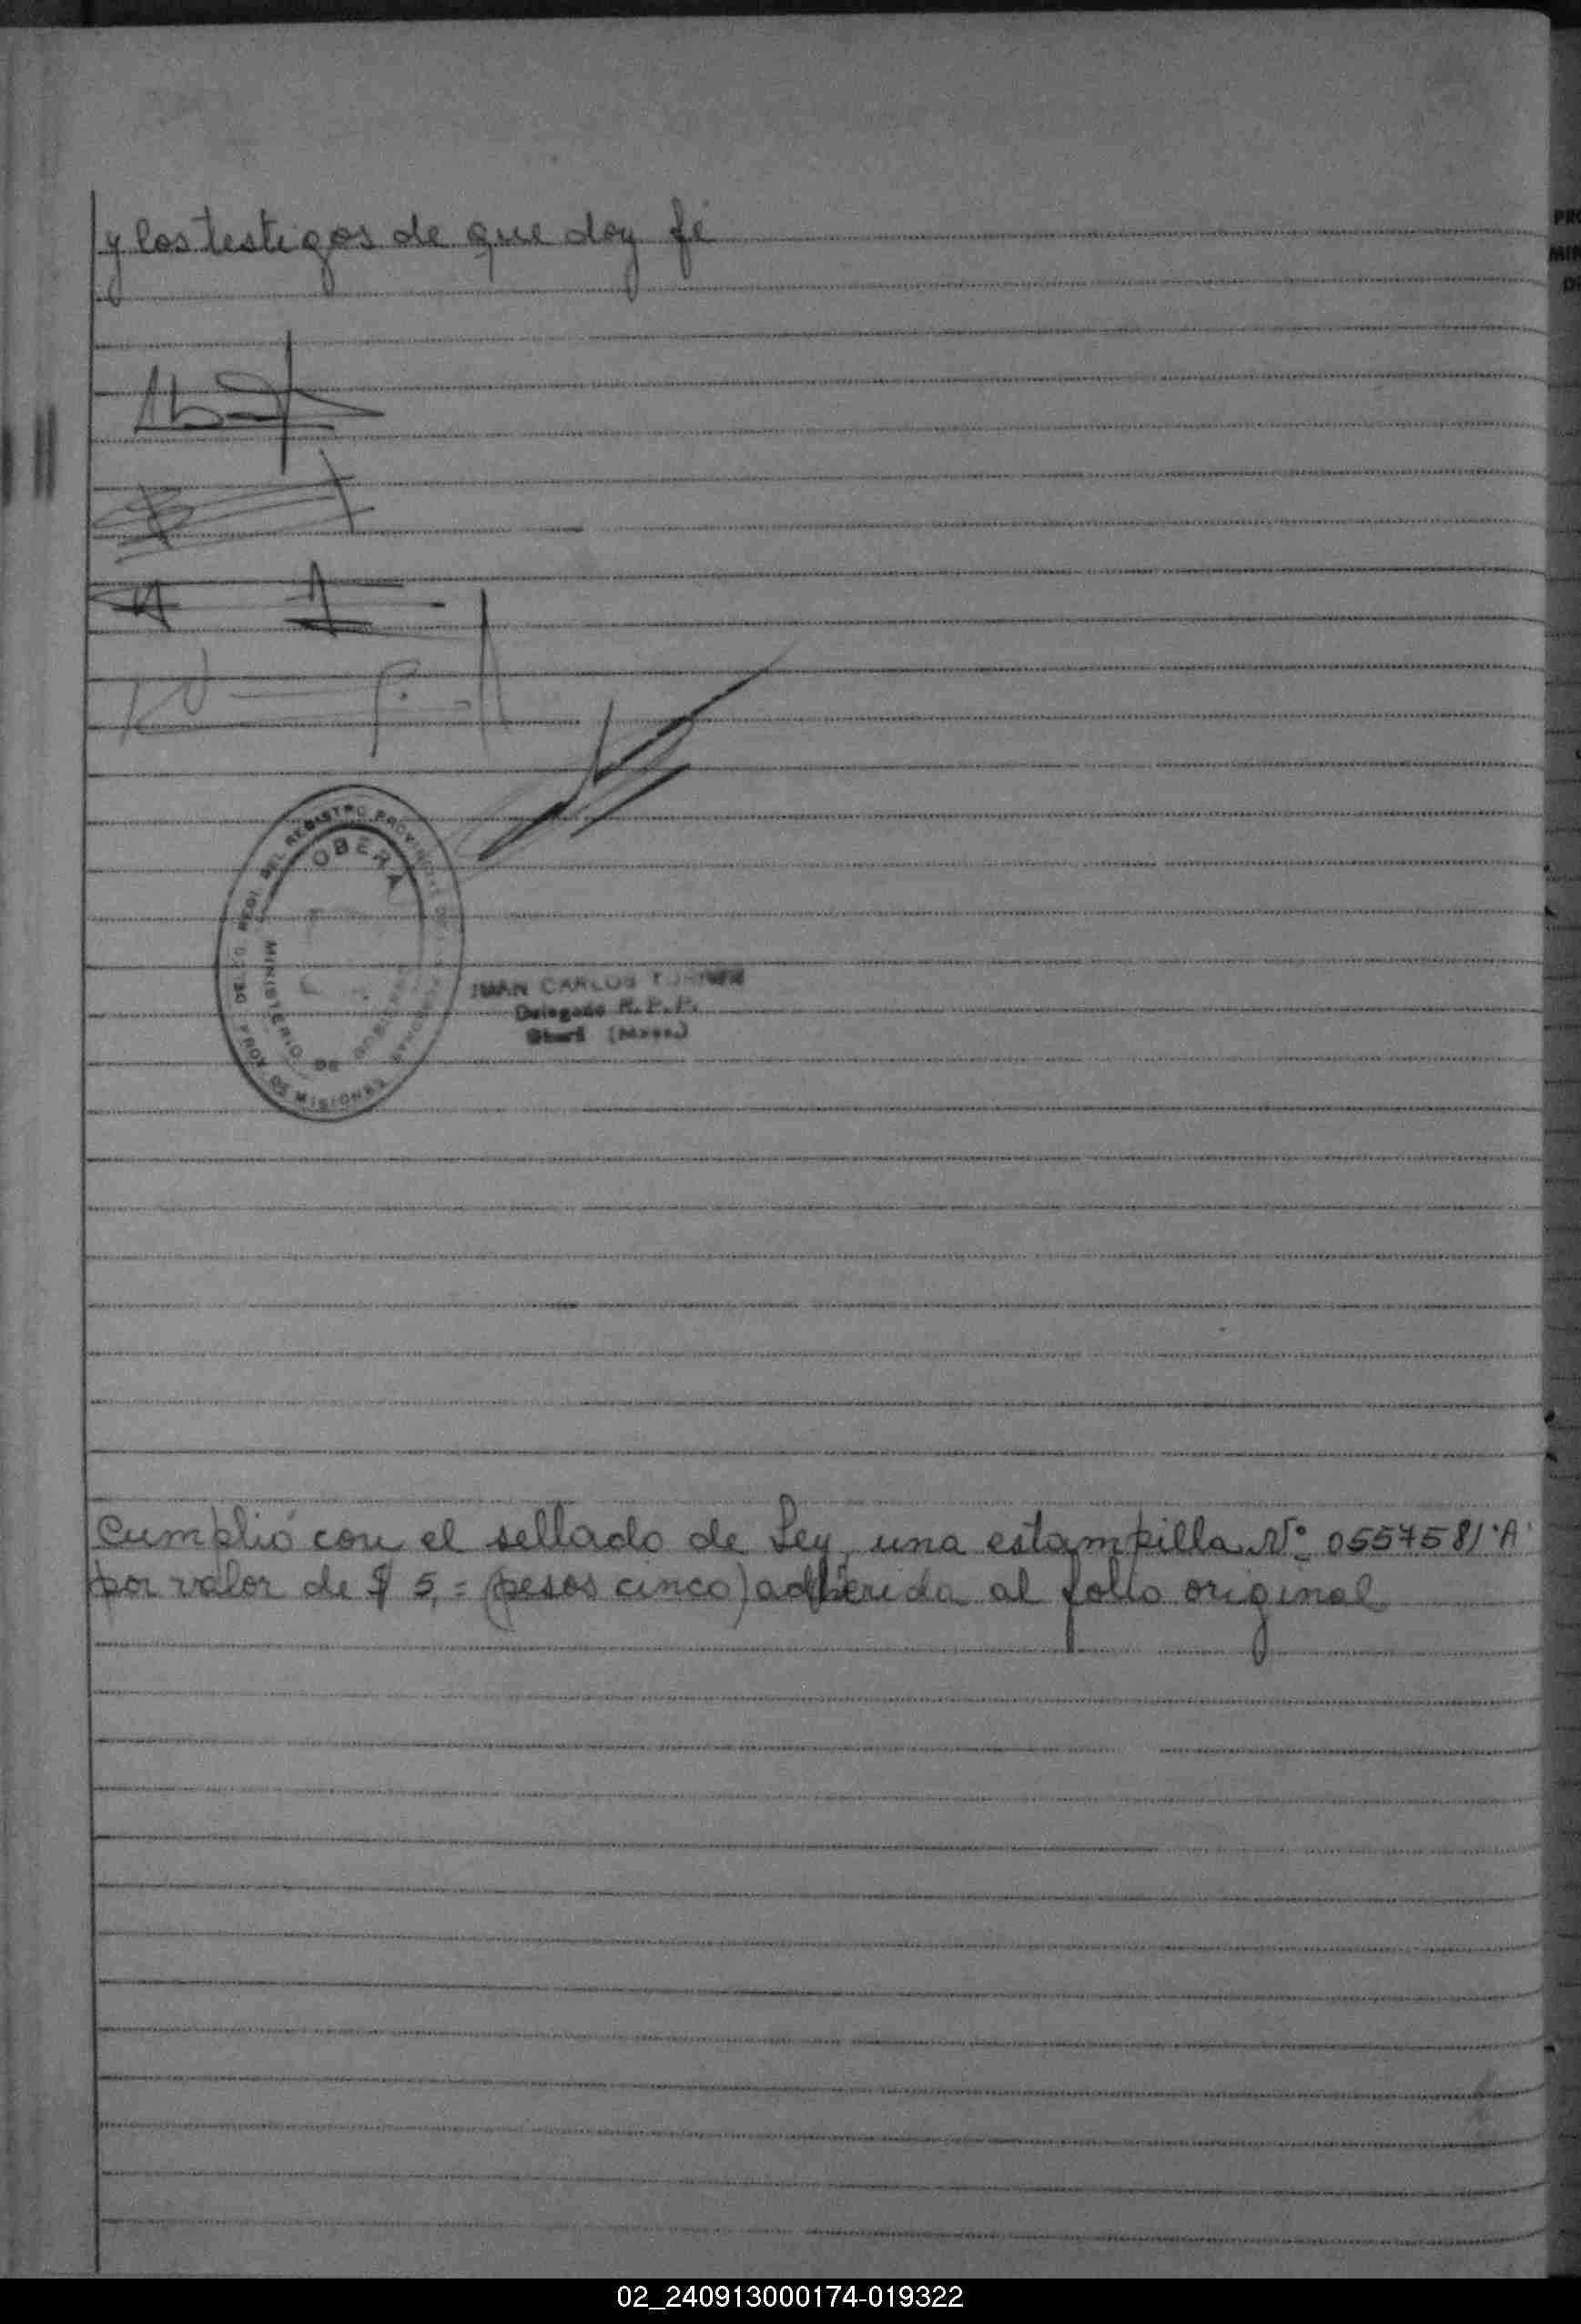 y los testigos de que doy fé
OBERA
MINISTERIO DE
PROV. DE MISIONES
DEL REGISTRO PROVINCIAL DE
JUAN CARLOS
Delegado R. P. P.
Oberá (Mnes.)
Cumplió con el sellado de Ley, una estampilla Nº 0557581 "A"
por valor de $ 5,= (pesos cinco) adherida al folio original
PRO
MIN
DE
02_240913000174-019322